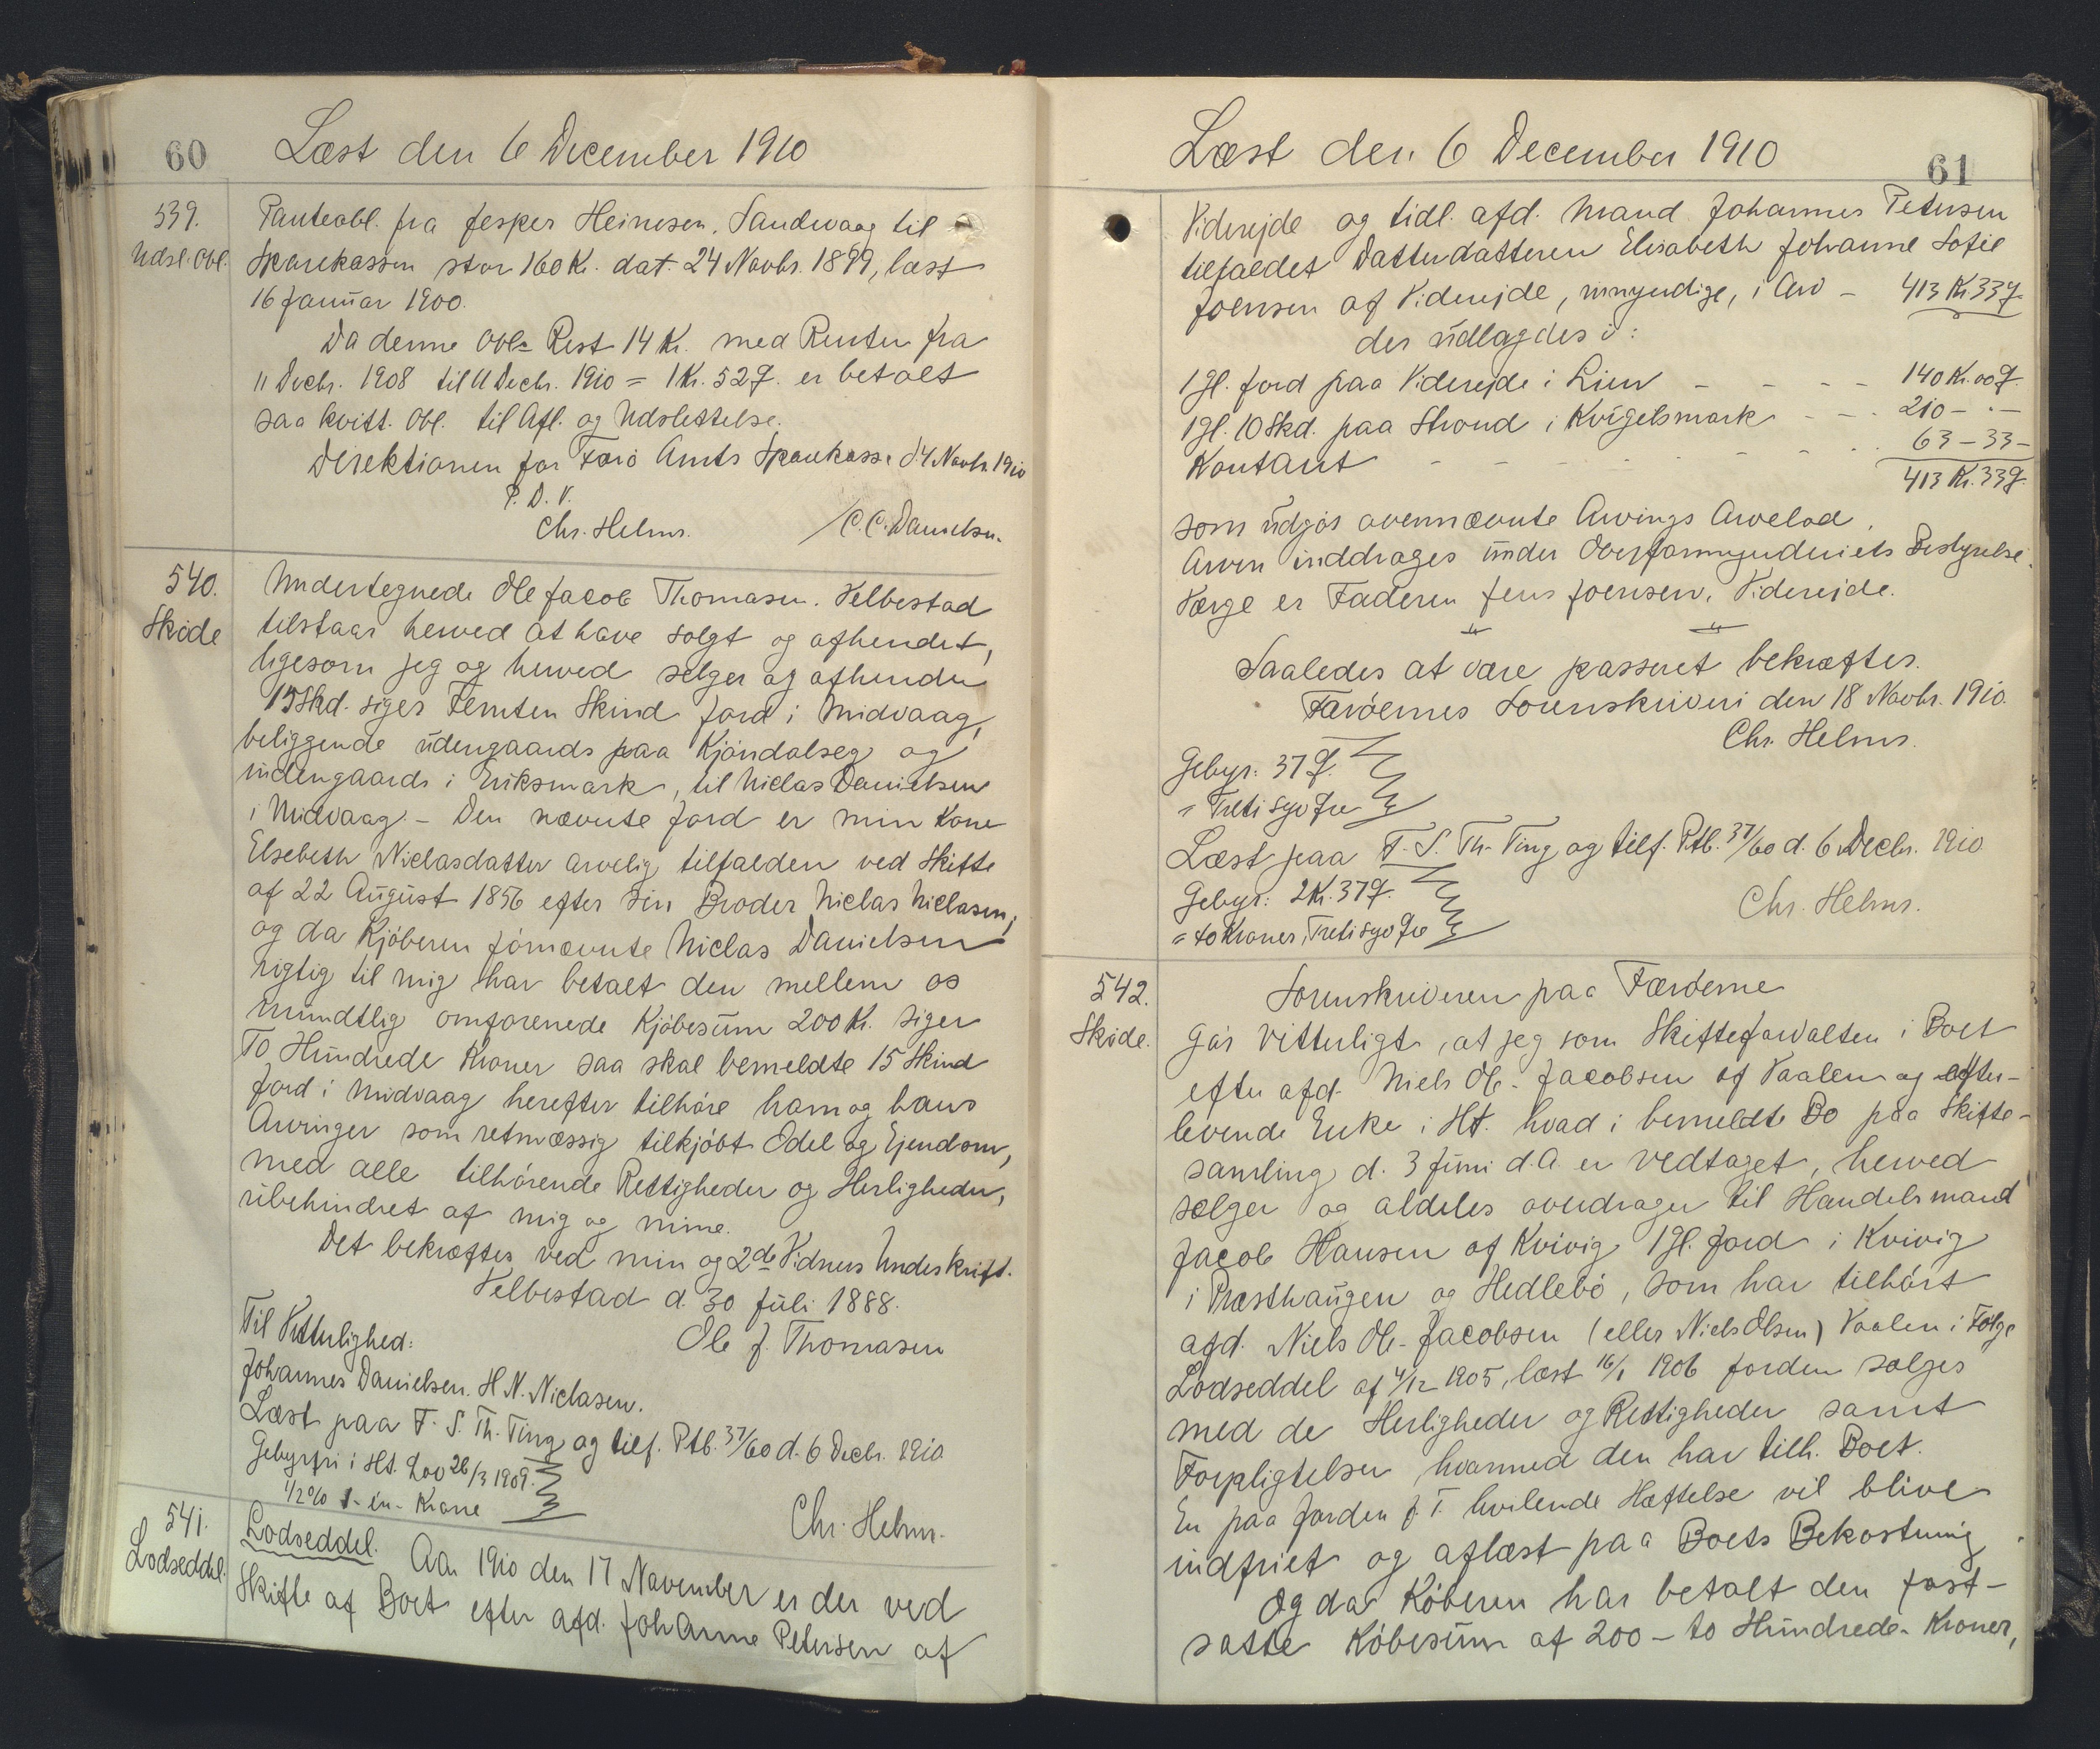 60
Læst den 6 December 1910
539.
Udsl. Obl.
Panteobl. fra Jesper Heinesen, Sandevaag til
Sparekassen stor 160 Kr. dat. 24 Novbr. 1899, læst
16 Januar 1900.
Da denne Obls Rest 14 Kr. med Renter fra
11 Decbr. 1908 til 11 Decbr. 1910 = 1 Kr. 52 Ø. er betalt
saa kvitt. Obl. til Afl. og Udslettelse.
Direktionen for Færø Amts Sparekasse d 4 Novbr. 1910
P. D. V.
Chr. Helms. / C. C. Danielsen.
540.
Skøde
Undertegnede Ole Jacob Thomasen. Velbestad
tilstaar herved at have solgt og afhendet,
ligesom jeg og herved sælger og afhender
15 Skd. siger Femten Skind Jord i Midvaag,
beliggende udengaards paa Kjøndalseg og
indengaards i Eriksmark, til Niclas Danielsen
i Midvaag. - Den nævnte Jord er min Kone
Elsebeth Niclasdatter arvelig tilfalden ved Skifte
af 22 August 1856 efter sin Broder Niclas Niclasen,
og da Kjøberen fornævnte Niclas Danielsen
rigtig til mig har betalt den mellem os
mundtlig omforenede Kjøbesum 200 Kr. siger
To Hundrede Kroner saa skal bemeldte 15 Skind
Jord i Midvaag herefter tilhøre ham og hans
Arvinger som retmæssig tilkjøbt Odel og Ejendom,
med alle tilhørende Rettigheder og Herligheder,
ubehindret af mig og mine.
Det bekræftes ved min og 2de Vidners Underskrift.
Velbestad d. 30 Juli 1888.
Til Vitterlighed:
Ole J. Thomasen
Johannes Danielsen. H. N. Niclasen.
Læst paa F. S. Th. Ting og tilf. Ptb. 37/60 d. 6 Decbr. 1910
Gebyrfri i Ht. Lov 26/3 1909.
1/2 % 1 - én - Krone
Chr. Helms.
541.
Lodseddel.
Lodseddel. Aar 1910 den 17 November er der ved
Skifte af Boet efter afd. Johanne Petersen af
61
Læst den 6 December 1910
Viderejde og tidl. afd. Mand Johannes Petersen
tilfaldet Datterdatteren Elisabeth Johanne Sofie
Joensen af Viderejde, umyndige, i Arv - 413 Kr. 33 Ø
der udlagdes i:
1 Gl. Jord paa Viderejde i Lien - - - - 140 Kr. 00 Ø.
1 Gl. 10 Skd. paa Strond i Kvigelsmark - - - 210 - . -
Kontant - - - - - - - 63 - 33 -
413 Kr. 33 Ø.
som udgør ovennævnte Arvings Arvelod.
Arven inddrages under Overformynderiets Bestyrelse.
Værge er Faderen Jens Joensen, Viderejde.
Saaledes at være passeret bekræftes.
Færøernes Sorenskriveri den 18 Novbr. 1910.
Chr. Helms.
Gebyr: 37 Ø.
= Treti syv Øre
Læst paa F. S. Th. Ting og tilf. Ptb. 37/60 d. 6 Decbr. 1910
Gebyr: 2 Kr. 37 Ø.
= to Kroner, Treti syv Øre
Chr. Helms.
542.
Skøde.
Sorenskriveren paa Færøerne
Gør Vitterligt, at jeg som Skifteforvalter i Boet
efter afd. Niels Ole Jacobsen af Vaalen og efter-
levende Enke i Ht. hvad i bemeldte Bo paa Skifte-
samling d. 3 Juni d. A. er vedtaget, herved
sælger og aldeles overdrager til Handelsmand
Jacob Hansen af Kvivig 1 Gl. Jord i Kvivig
i Præsthaugen og Hedlebø, som har tilhørt
afd. Niels Ole Jacobsen (eller Niels Olsen) Vaalen i Følge
Lodseddel af 4/12 1905, læst 16/1 1906 Jorden sælges
med de Herligheder og Rettigheder samt
Forpligtelser hvormed den har tilh. Boet.
En paa Jorden f. T. hvilende Hæftelse vil blive
indfriet og aflæst paa Boets Bekostning.
Og da Køberen har betalt den fast-
satte Købesum af 200 - to Hundrede - Kroner,